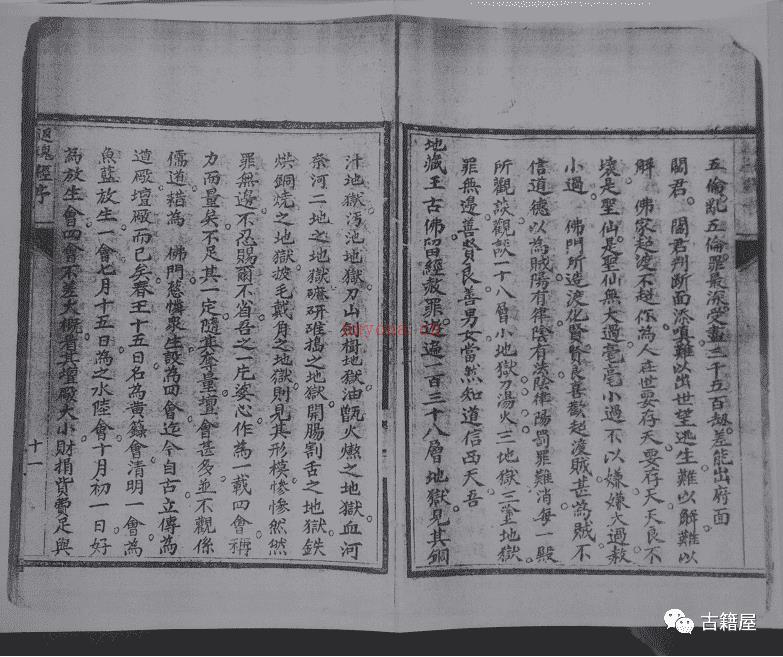 五倫亂五倫罪最深受盡二千五百劫差能出府面
閻君 閻君判断面添嗔難以出世望逃生難以解難以
解 佛家起渡不起作為人在世要存天要存天天良不
壞是聖仙是聖仙無大過毫毫小過不以嫌嫌大過赦
小過 佛門所造渡化賢賢良善歡起渡賊甚為賊不
信道德以為賊陽有律陰有法陰律陽罰罪難消每一殿
所觀談觀談一十八層小地獄刀湯火三地獄三塗地獄
罪無邊善賢良善男女當然知道信西天吾
地藏王古佛留經赦罪边遍一百三十八層地獄見其銅
汁地獄污池地獄刀山劍樹地獄油甑火燃之地獄血河
奈河二地之地獄礳研碓搗之地獄開腸割舌之地獄鉄
烘銅燒之地獄披毛戴角之地獄則見其形模慘慘然然
罪無邊不忍賜爾不省吾之一片婆心作為一載四會稱
力而量矣不足其一定隨其奪量壇會甚多並不觀係
儒道藉為 佛門慈憐衆生設為四會迄今自古立傳為
道厰壇厰而已矣春王十五日名為黄籙會清明一會為
魚藍放生一會七月十五日為之水陸會十月初一日好
為放生會四會不差大概看其壇厰大小財捐貲費足與
經序
十一
古籍屋